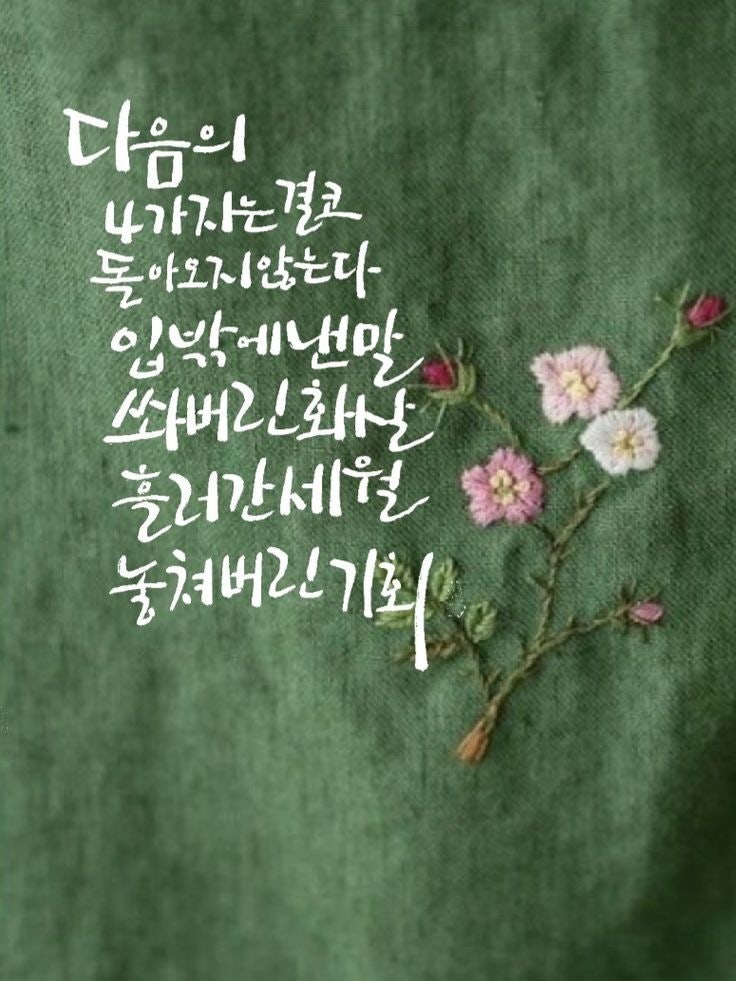 다음의
4가지는 결코
돌아오지 않는다
입밖에 낸 말
쏴버린 화살
흘러간 세월
놓쳐버린 기회